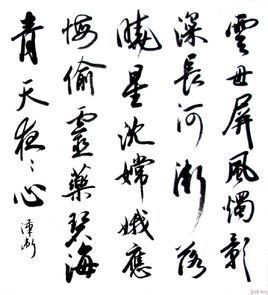 雲母屏風燭影
深長河漸落
曉星沈嫦娥應
悔偷靈藥碧海
青天夜〻心